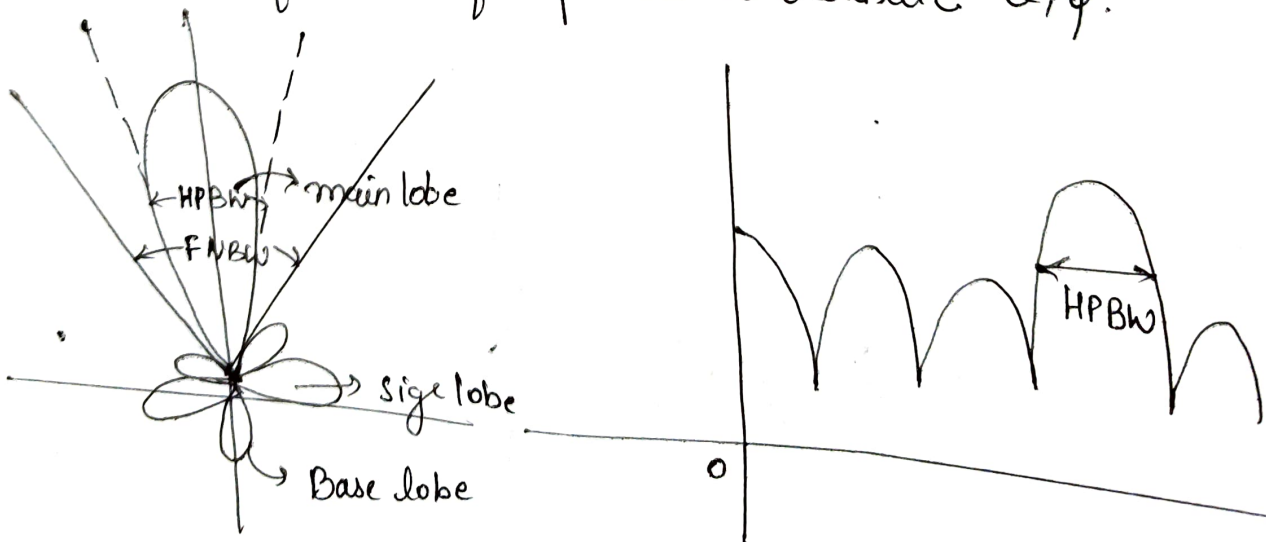 HPBW
main lobe
FNBW
sige lobe
Base lobe
HPBW
0